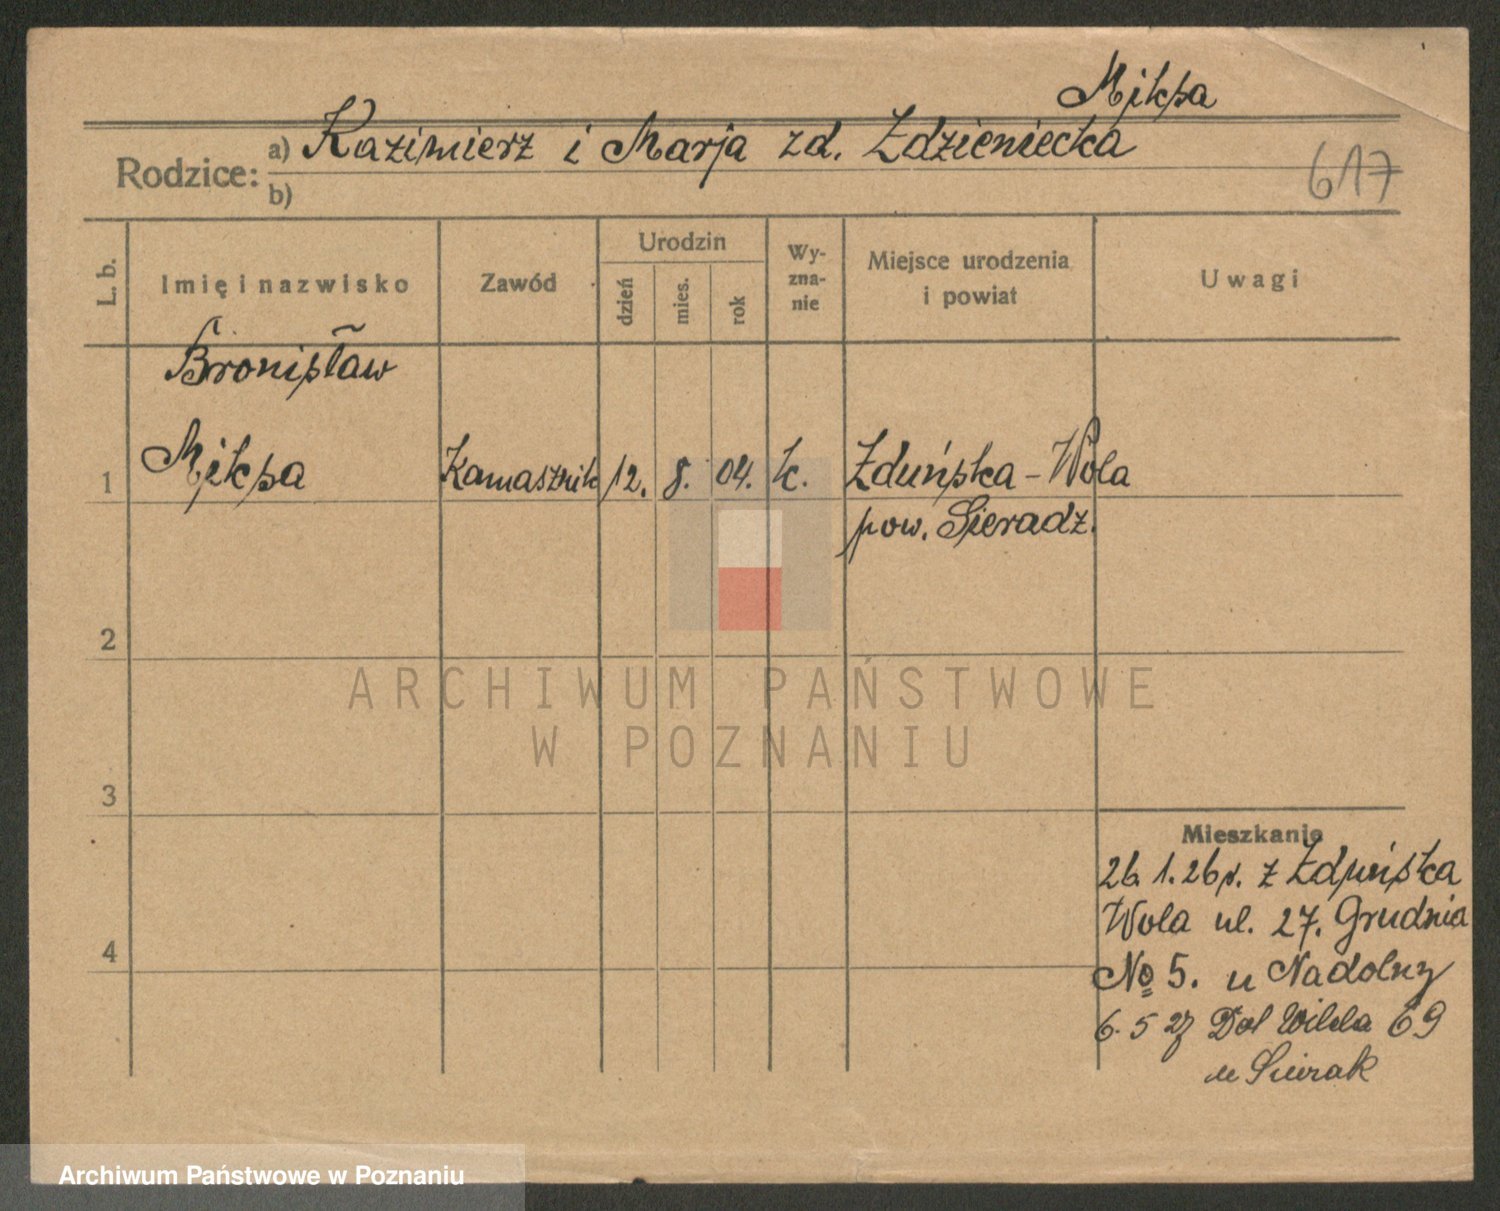 Miksa
Rodzice: a) Kazimierz i Marja zd. Zdzieniecka
b)
617
L. b.
Imię i nazwisko
Zawód
Urodzin
dzień
mies.
rok
Wy-
zna-
nie
Miejsce urodzenia
i powiat
Uwagi
Bronisław
1 Miksa Kamasznik 12. 8. 04. k. Zduńska-Wola
pow. Sieradz.
2
ARCHIWUM PAŃSTWOWE
W POZNANIU
3
Mieszkanie
26. 1. 26 r. z Zduńska
Wola ul. 27. Grudnia
4
№ 5. u Nadolny
6. 5 27 Dol Wilda 69
u Sierak
Archiwum Państwowe w Poznaniu